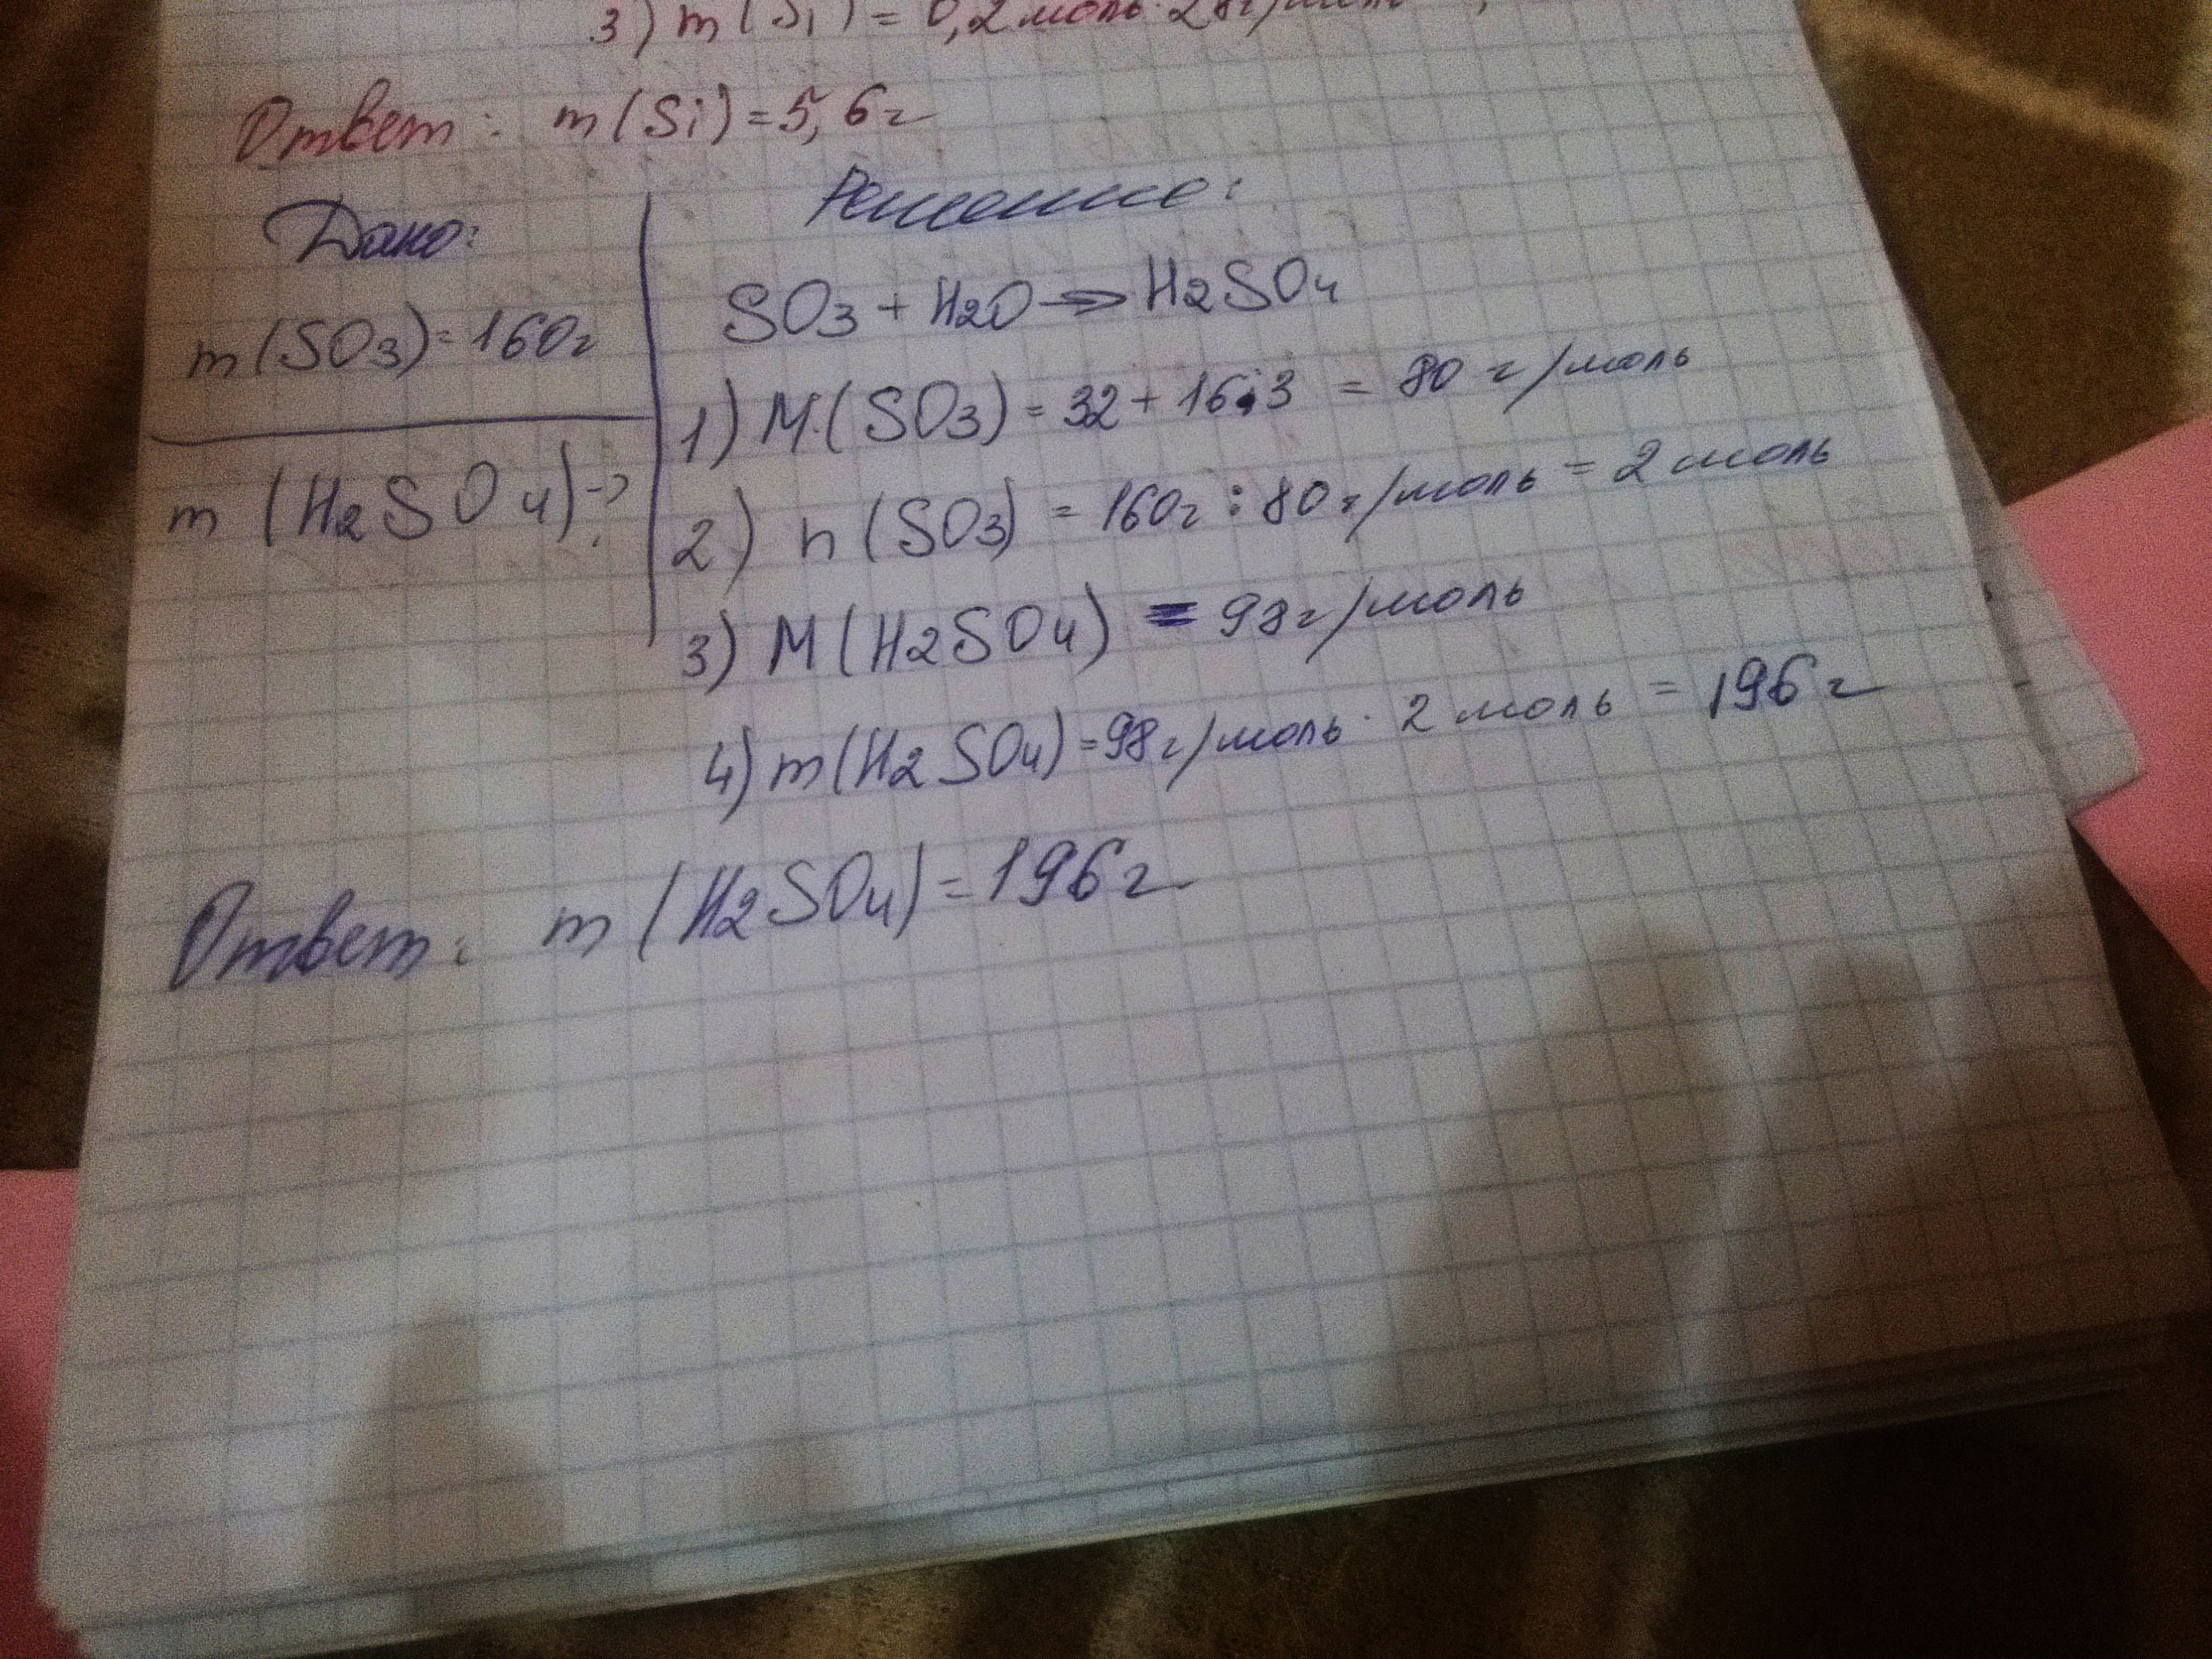 3) m(Si) = 0,2 моль · 28г/моль
Ответ: m(Si)=5,6г
Дано:
m(SO3)=160г
m(H2SO4)-?
Решение:
SO3 + H2O → H2SO4
1) M(SO3) = 32 + 16·3 = 80 г/моль
2) n(SO3) = 160г : 80г/моль = 2 моль
3) M(H2SO4) = 98г/моль
4) m(H2SO4)=98г/моль · 2 моль = 196г
Ответ: m(H2SO4)=196г